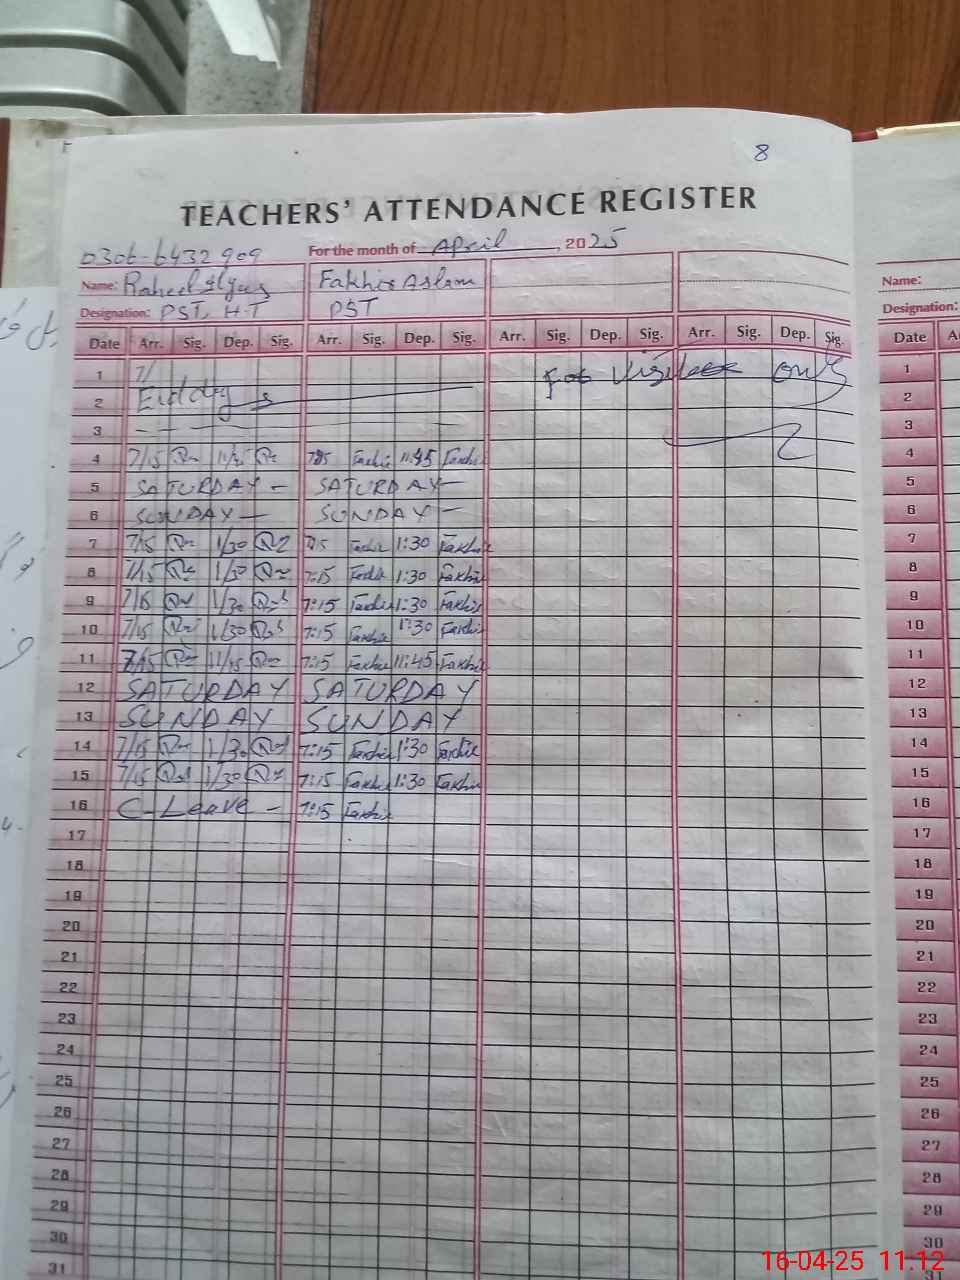 8
TEACHERS' ATTENDANCE REGISTER
0306-6432909 For the month of April, 2025
Name: Raheel Ilyas Fakhir Aslam Name:
Designation: PST, H.T PST Designation:
Date Arr. Sig. Dep. Sig. Arr. Sig. Dep. Sig. Arr. Sig. Dep. Sig. Arr. Sig. Dep. Sig. Date
1 7/ For only 1
2 Eid day s 2
3 3
4 7/15 7:15 Fakhir 11:45 Fakhir 4
5 SATURDAY - SATURDAY - 5
6 SUNDAY - SUNDAY - 6
7 7/15 1/30 7:15 Fakhir 1:30 Fakhir 7
8 7/15 1/30 7:15 Fakhir 1:30 Fakhir 8
9 7/15 1/30 7:15 Fakhir 1:30 Fakhir 9
10 7/15 1/30 7:15 Fakhir 1:30 Fakhir 10
11 7/15 11/45 7:15 Fakhir 11:45 Fakhir 11
12 SATURDAY SATURDAY 12
13 SUNDAY SUNDAY 13
14 7/15 1/30 7:15 Fakhir 1:30 Fakhir 14
15 7/15 1/30 7:15 Fakhir 1:30 Fakhir 15
16 C-Leave - 7:15 Fakhir 16
17 17
18 18
19 19
20 20
21 21
22 22
23 23
24 24
25 25
26 26
27 27
28 28
29 29
30 30
31 31
16-04-25 11:12